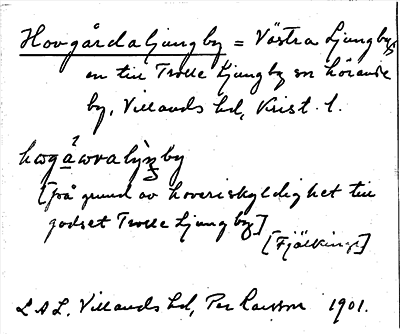 Hovgårdaljungby = Västra Ljungby,
en till Trolle Ljungby sn hörande
by, Villands hd, Krist. l.
[på grund av hoveriskyldighet till
godset Trolle Ljungby]
[Fjälkinge]
LAL. Villands hd, Per Larsson 1901.